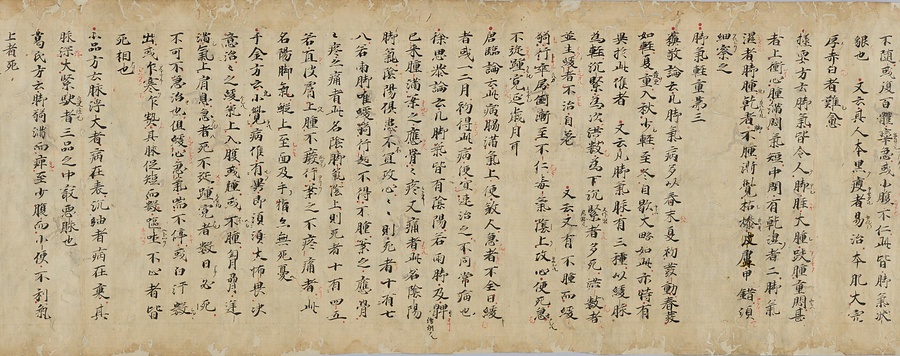 下随或復百體率急或小腹不仁此皆脚氣状
貌也 又云其人本黒瘦者易治本肥大肉
厚赤白者難愈
極要方云脚氣皆令人脚脛大腫趺腫重悶甚
者上衝心腫滿氣短中間有乾濕者二脚氣
濕者脚腫乾者不腫漸覺枯燥皮膚甲錯須
細察之
脚氣輕重第三
雜敎論云凡脚氣病多以春末夏初發動春發
如輕夏重入秋少輕至冬自歇大略如此亦時有
異於此候者 又云凡脚氣脉有三種以緩脉
為輕沉緊為次洪數為下沉緊者多死洪數者
並生緩者不治自差 又云又有不腫而緩
弱行卒屈倒漸至不仁毒氣陰上攻心便死急
不延踵寛延歳月耳
唐臨論云此病腸滿氣上便敎人急者不全日緩
者或一二月初得此病便宜速治之不同常病也
徐思恭論云凡脚氣皆有陰陽若兩脚及胛
已來腫滿按之應骨之疼又痛者此名陰陽
脚氣陰陽俱患不宜攻心心則死者十有七
八若兩脚唯緩弱行起不得不腫按之應骨
之疼痛者此名陰脚氣陰上則死者十有四五
若直皮膚上腫不癈行按之不疼痛者此
名陽脚氣縱上至面及手指亦無死憂
千金方云小覺病候有異即須大怖畏決
意治之之緩氣上入腹或腫或不腫胷脅逆
滿氣上肩息急者死不延踵寛者數日必死
不可不急治也但緩心急氣喘不停或白汗數
出或乍寒乍熱其脉促短而數嘔吐不止者皆
死相也
小品方云脉浮大者病在表沉細者病在裏其
脉深大緊駃者三品之中最惡脉也
葛氏方云脚弱滿而痺至少腹而小便不利氣
上者死